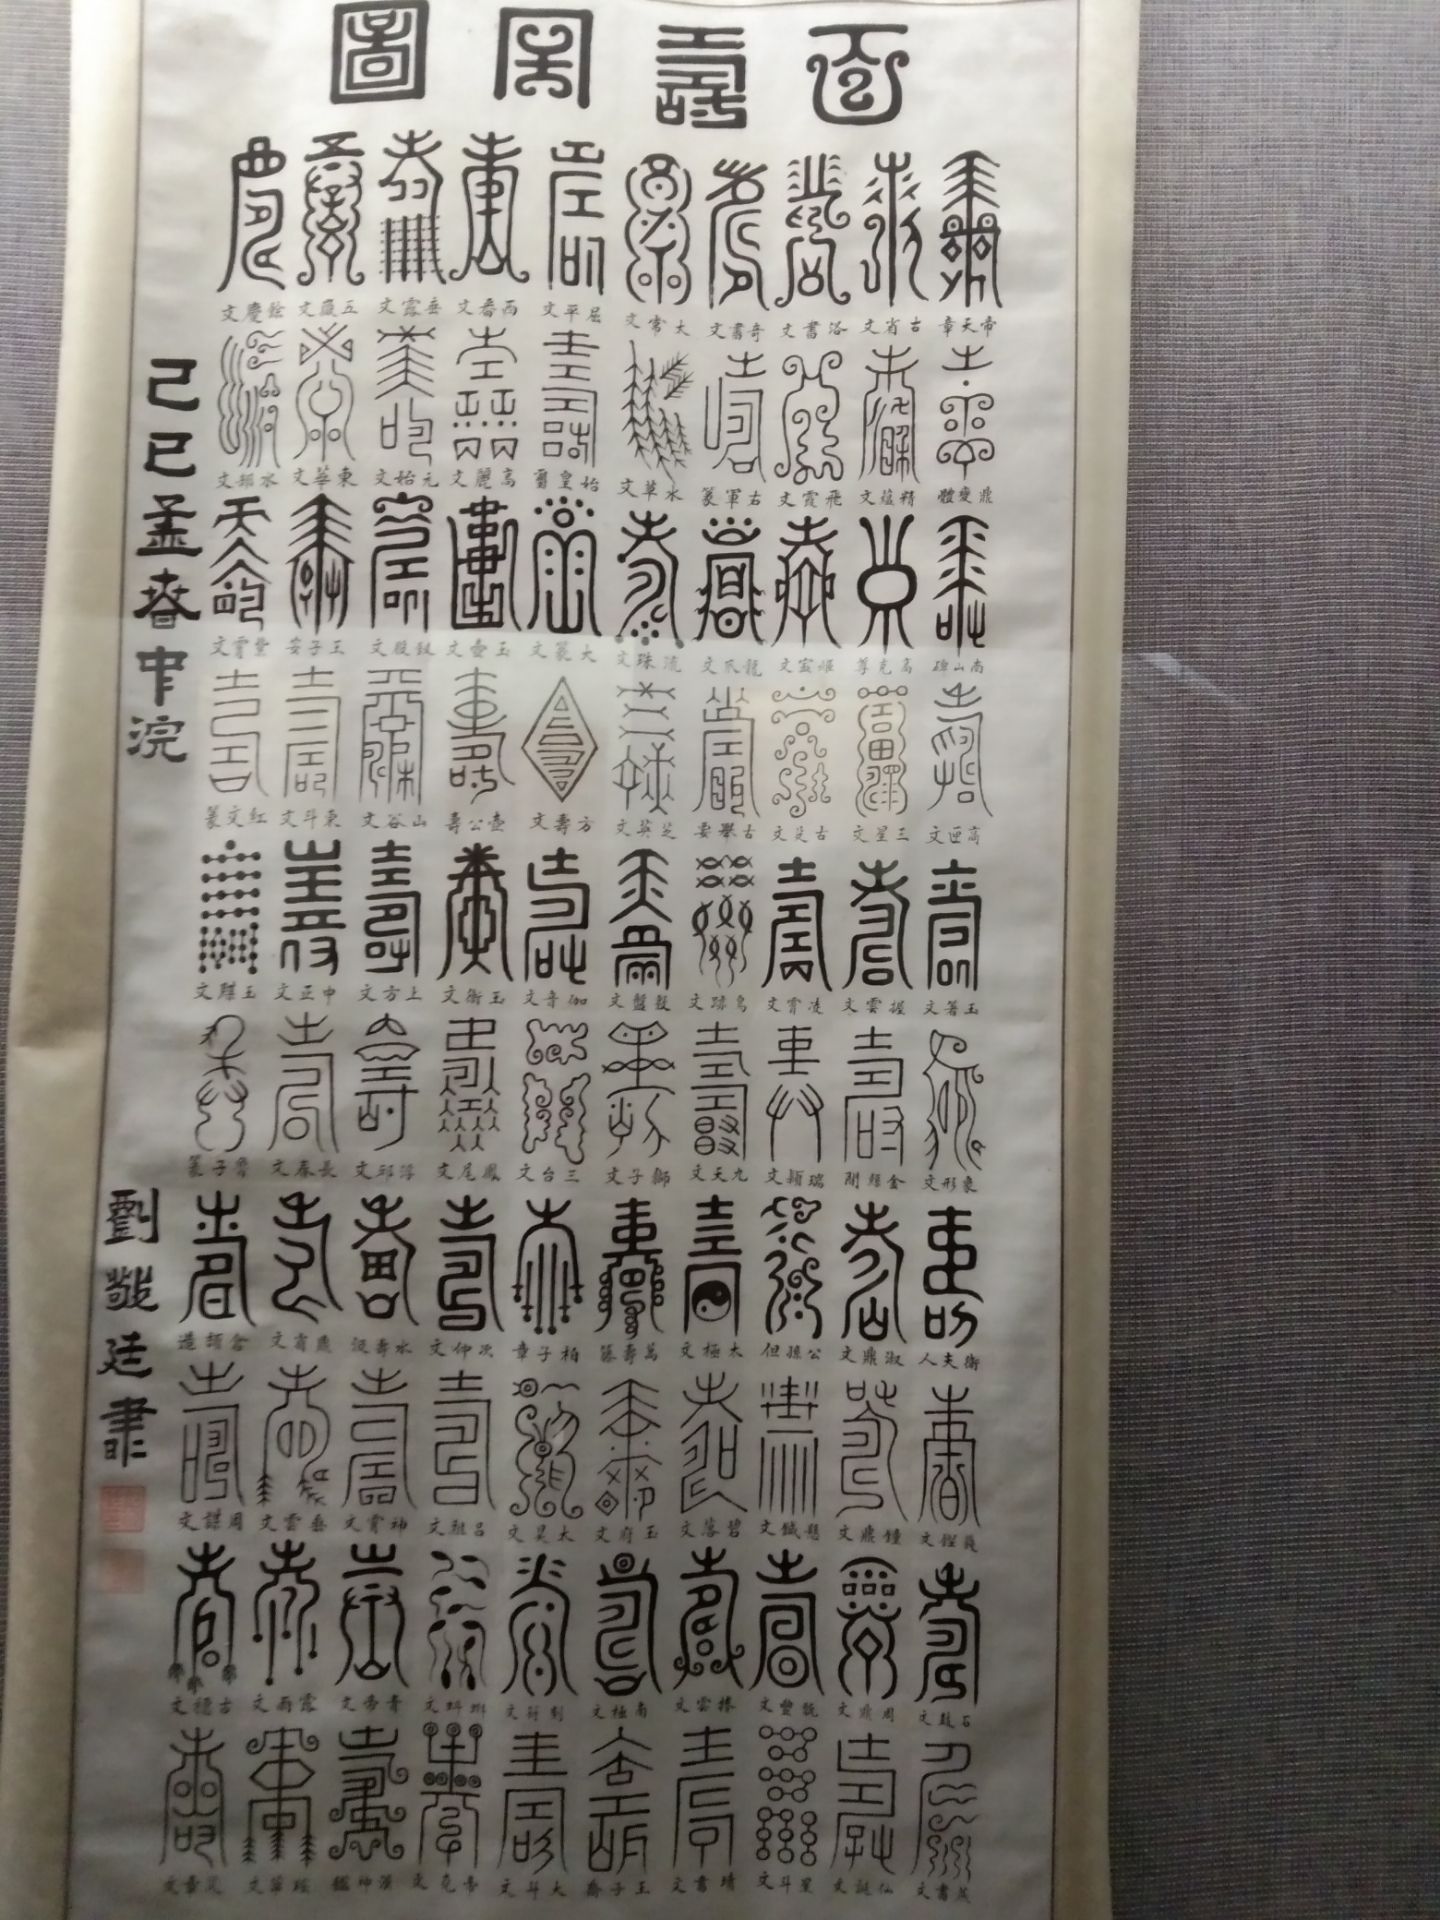 百壽周圖
帝天章 古省文 洛書文 奇書文 大常文 屈平文 西番文 垂露文 五嶽文 餘慶文
鼎變體 精蘊文 飛霞文 右軍篆 水草文 始皇璽 高麗文 元始文 東華文 水部文
南山碑 高克尊 姬寔文 龍爪文 流珠文 大篆文 玉壺文 釵股文 王子安 紫霄文
高匝文 三星文 古文 古舉要 芝英文 方壽文 壺公壽 山谷文 東斗文 紅文篆
玉箸文 握雲文 凌霄文 鳥跡文 殷盤文 伽音文 玉衡文 上方文 中正文 玉牒文
象形文 金 瑞穎文 九天文 獅子文 三台文 鳳尾文 浮邱文 長春文 子篆
衛夫人 淑鼎文 公孫但 太極文 萬壽篆 柏子章 次仲文 水壽 文 倉頡造
文 鐘鼎文 懸鍼文 碧落文 玉府文 太昊文 呂祖文 神霄文 垂雲文 周謀文
石鼓文 周鼎文 號豐文 捧雲文 南極文 刻符文 蝌蚪文 青帝文 露雨文 古穗文
書文 仙誕文 星斗文 靖書文 王子喬 大斗文 帝堯文 漢神鑑 瑤草文 章文
己巳孟春中浣
劉敬廷書